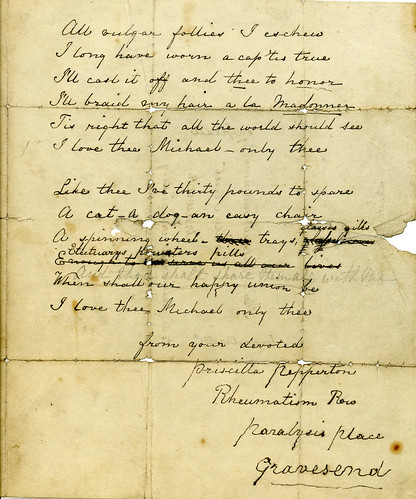 All vulgar follies I eschew
I long have worn a cap 'tis true
I'll cast it off and thee to honor
I'll braid my hair a la Madonner
Tis right that all the world should see
I love thee Michael - only thee
Like thee I've thirty pounds to spare
A cat - a dog - an easy chair
A spinning wheel - trays, gills
pills
Enough to serve us all our lives
When shall our happy union be
I love thee Michael only thee
from your devoted
Priscilla Pepperton
Rheumatism Row
Paralysis Place
Gravesend